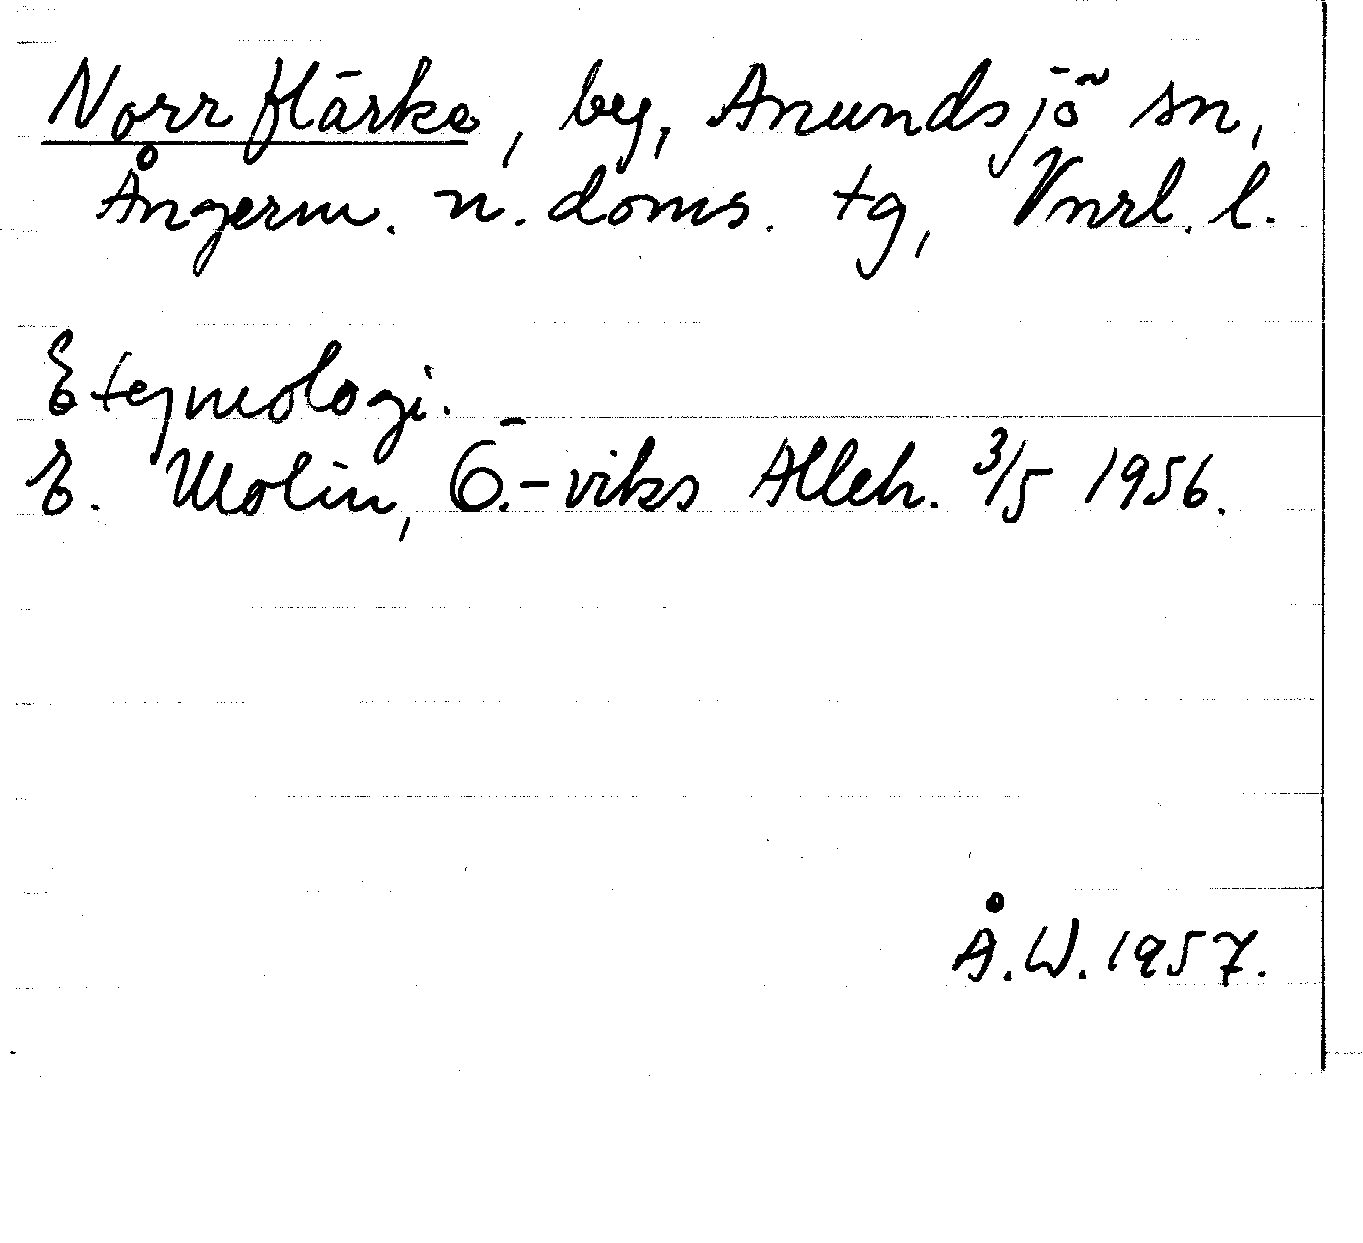 Norrflärke, by, Anundsjö sn,
Ångerm. n. doms. tg, Vnrl. l.
Etymologi.
E. Molin, Ö.-viks Alleh. 3/5 1956.
Å.W. 1957.